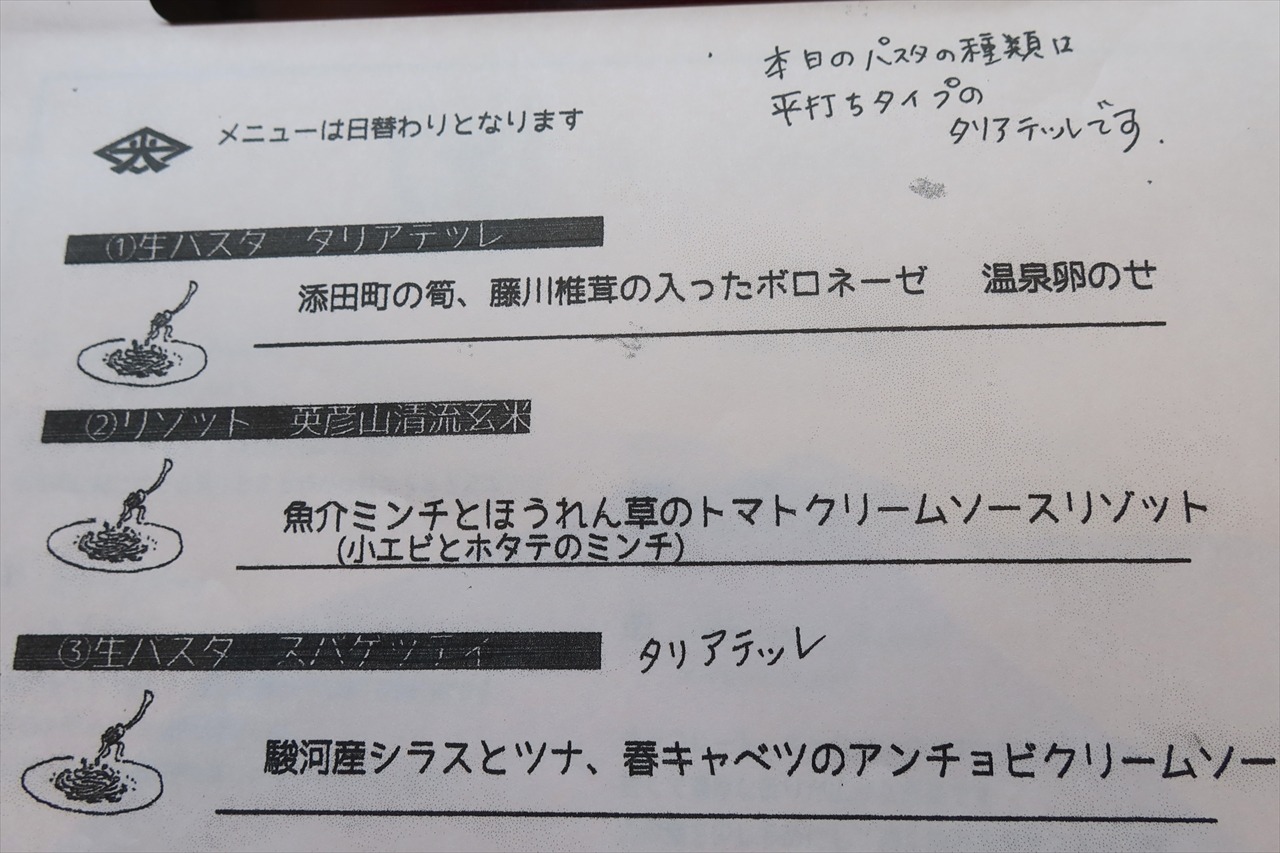 本日のパスタの種類は
平打ちタイプの
タリアテッレです.
メニューは日替わりとなります
①生パスタ タリアテッレ
添田町の筍、藤川椎茸の入ったボロネーゼ 温泉卵のせ
②リゾット 英彦山清流玄米
魚介ミンチとほうれん草のトマトクリームソースリゾット
(小エビとホタテのミンチ)
③生パスタ スパゲッティ タリアテッレ
駿河産シラスとツナ、春キャベツのアンチョビクリームソー